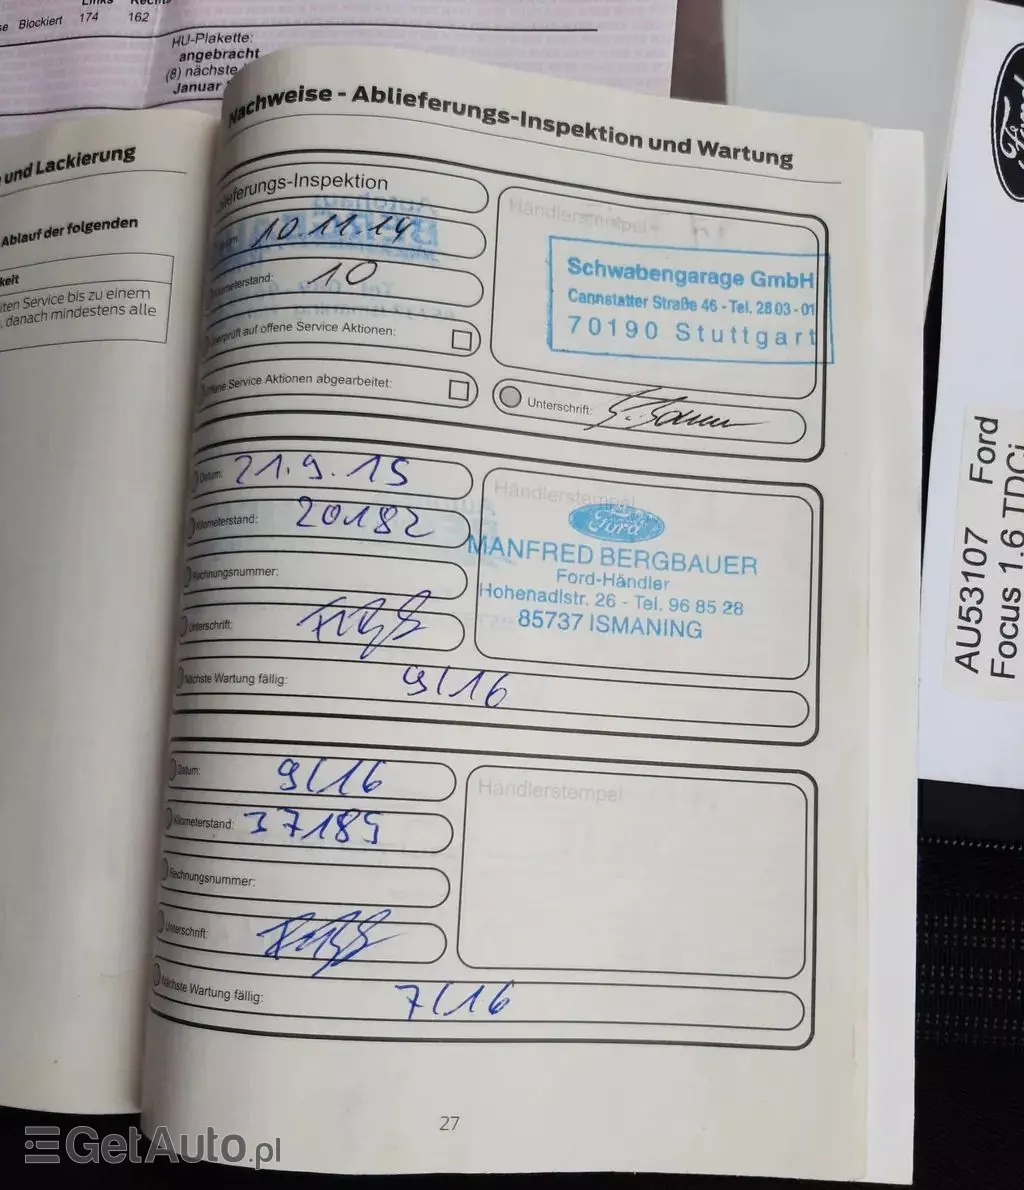 Links Rechts
se Blockiert 174 162
HU-Plakette:
angebracht
(8) nächste
Januar
und Lackierung
Ablauf der folgenden
keit
ten Service bis zu einem
, danach mindestens alle
Nachweise - Ablieferungs-Inspektion und Wartung
Ablieferungs-Inspektion
Datum: 10.11.14
Kilometerstand: 10
Überprüft auf offene Service Aktionen:
Offene Service Aktionen abgearbeitet:
Händlerstempel
Schwabengarage GmbH
Cannstatter Straße 46 - Tel. 28 03-01
70190 Stuttgart
Unterschrift:
Datum: 21.9.15
Kilometerstand: 20182
Rechnungsnummer:
Unterschrift:
Händlerstempel
Ford
MANFRED BERGBAUER
Ford-Händler
Hohenadlstr. 26 - Tel. 96 85 28
85737 ISMANING
Nächste Wartung fällig: 9/16
Datum: 9/16
Kilometerstand: 37185
Rechnungsnummer:
Unterschrift:
Händlerstempel
Nächste Wartung fällig: 7/16
27
Ford
AU53107 Ford
Focus 1.6 TDCi
GetAuto.pl